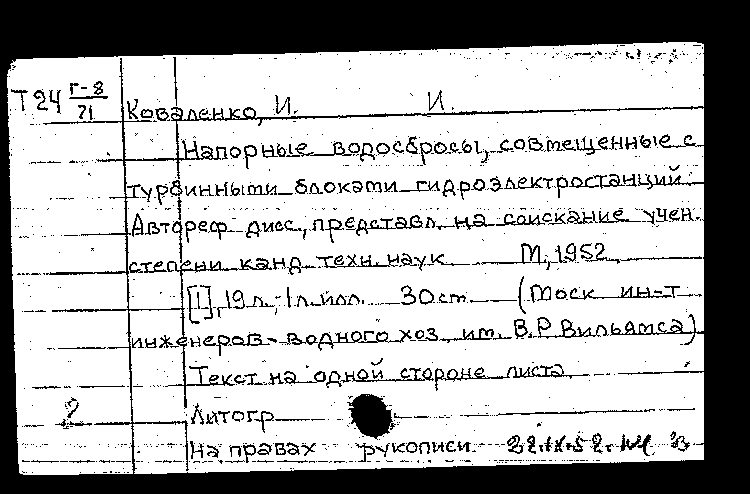 Т 24 г-8/71
Коваленко, И. И.
Напорные водосбросы, совмещенные с
турбинными блоками гидроэлектростанций.
Автореф дисс., представл. на соискание учен.
степени канд. техн. наук М., 1952.
[1], 19 л., 1 л. илл. 30 ст. (Моск ин-т
инженеров водного хоз. им. В.Р. Вильямса)
Текст на одной стороне листа.
2 Литогр
На правах рукописи 22.IX.52.